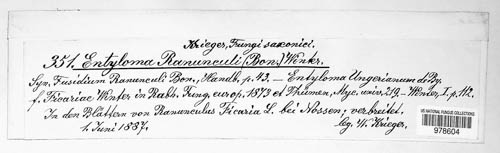 Krieger, Fungi saxonici.
351. Entyloma Ranunculi (Bon.) Winter.
Syn. Fusidium Ranunculi Bon., Handb. p. 43. — Entyloma Ungerianum de By.
f. Ficariae Winter in Rabh. Fung. europ. 1873 et Thümen, Myc. univ. 219 — Winter, I p. 112.
In den Blättern von Ranunculus Ficaria L. bei Nossen; verbreitet.
1. Juni 1887. leg. W. Krieger.
US NATIONAL FUNGUS COLLECTIONS
978604